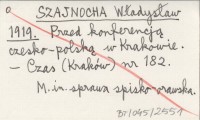 SZAJNOCHA Władysław
1919. Przed konferencją
czesko-polską w Krakowie.
– Czas (Kraków) nr 182.
M. in. sprawa spisko-orawska.